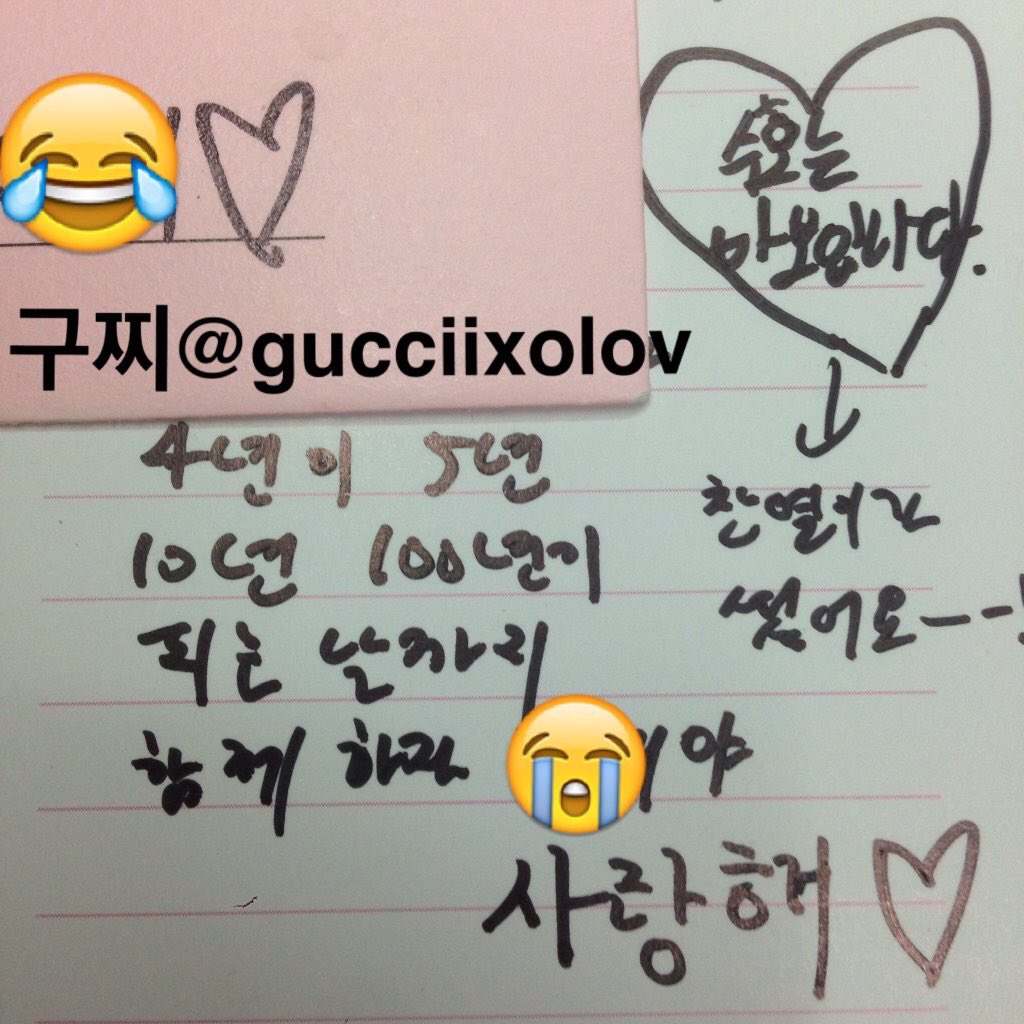 수호는
바보입니다.
찬열이가
썼어요--!
구찌@gucciixolov
4년이 5년
10년 100년이
되는 날까지
함께 하자 야
사랑해♡